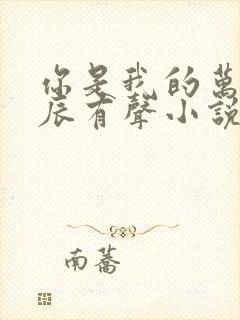 你是我的萬
辰有聲小說
南蕎